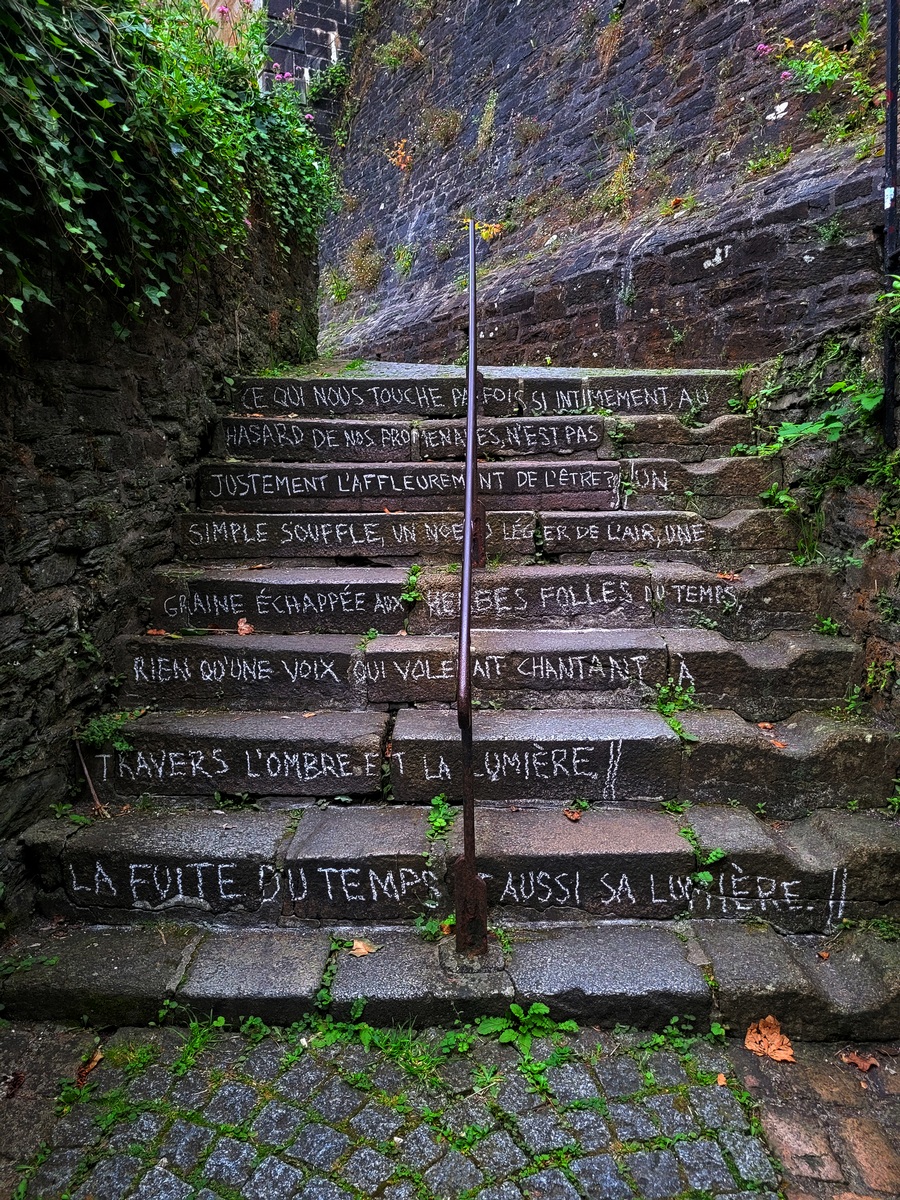 CE QUI NOUS TOUCHE PARFOIS SI INTIMEMENT AU
HASARD DE NOS PROMENADES, N'EST PAS
JUSTEMENT L'AFFLEUREMENT DE L'ÊTRE? // UN
SIMPLE SOUFFLE, UN NOEUD LÉGER DE L'AIR, UNE
GRAINE ÉCHAPPÉE AUX HERBES FOLLES DU TEMPS,
RIEN QU'UNE VOIX QUI VOLERAIT CHANTANT À
TRAVERS L'OMBRE ET LA LUMIÈRE //
LA FUITE DU TEMPS EST AUSSI SA LUMIÈRE. //